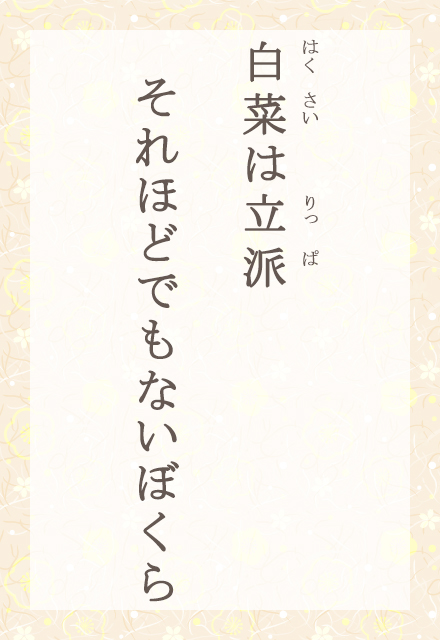 白菜は立派
はく さい りっ ぱ
それほどでもないぼくら